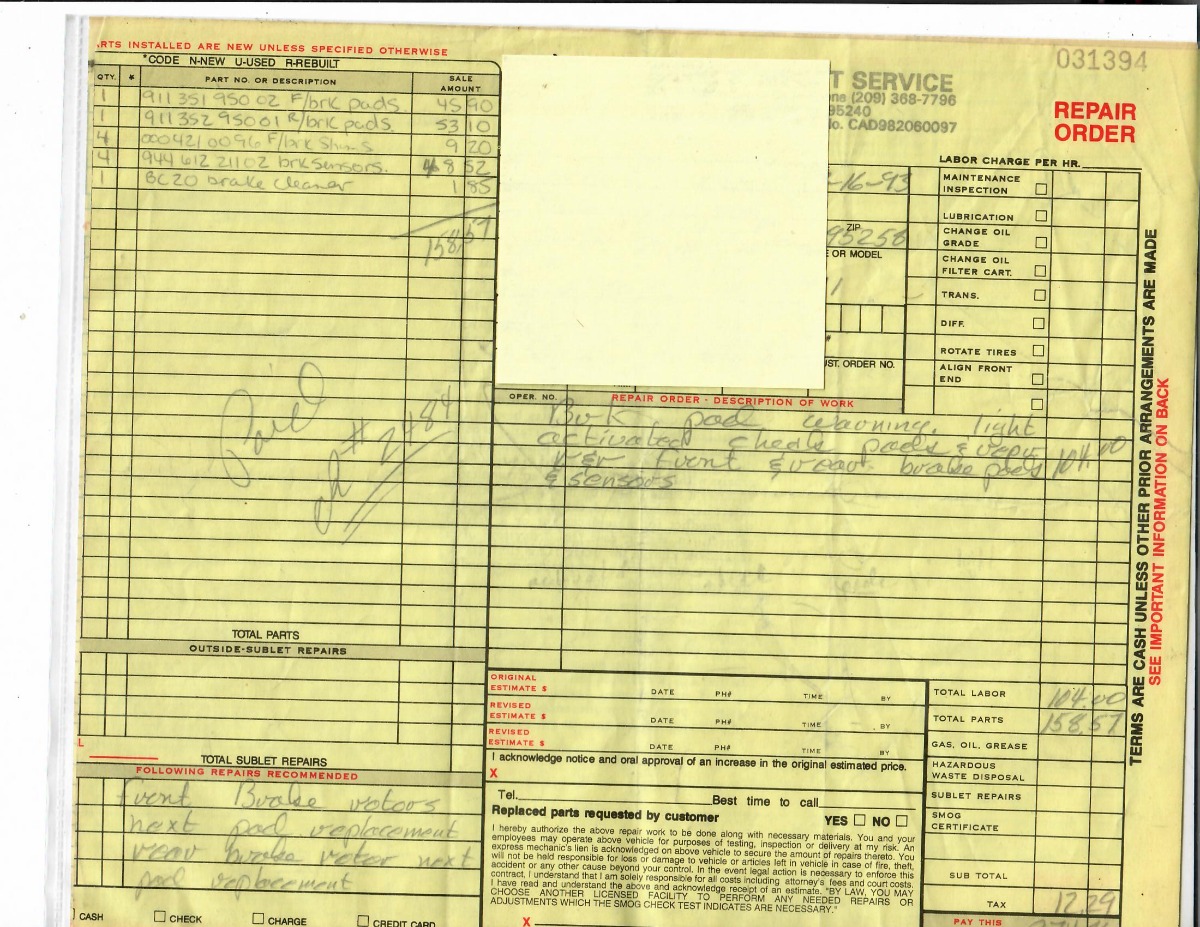 RTS INSTALLED ARE NEW UNLESS SPECIFIED OTHERWISE
*CODE N-NEW U-USED R-REBUILT
QTY. * PART NO. OR DESCRIPTION SALE AMOUNT
1 911 351 950 02 F/brk pads 45 90
1 911 352 950 01 R/brk pads 53 10
4 000 421 00 96 F/brk Shims 9 20
4 944 612 211 02 brk sensors. 48 52
1 BC20 brake cleaner 1 85
158 57
Paid
ck # 2484
TOTAL PARTS
OUTSIDE-SUBLET REPAIRS
L
TOTAL SUBLET REPAIRS
FOLLOWING REPAIRS RECOMMENDED
front Brake rotors
next pad replacement
rear brake rotor next
pad replacement
CASH CHECK CHARGE CREDIT CARD
T SERVICE
one (209) 368-7796
95240
No. CAD982060097
031394
REPAIR
ORDER
-16-93
ZIP
95258
E OR MODEL
1
#
UST. ORDER NO.
LABOR CHARGE PER HR.
MAINTENANCE
INSPECTION
LUBRICATION
CHANGE OIL
GRADE
CHANGE OIL
FILTER CART.
TRANS.
DIFF.
ROTATE TIRES
ALIGN FRONT
END
OPER. NO. REPAIR ORDER - DESCRIPTION OF WORK
Brk pad warning light
activated check pads &
r&r front & rear brake pads 104.00
& sensors
ORIGINAL
ESTIMATE $ DATE PH# TIME BY
REVISED
ESTIMATE $ DATE PH# TIME BY
REVISED
ESTIMATE $ DATE PH# TIME BY
I acknowledge notice and oral approval of an increase in the original estimated price.
X
Tel. Best time to call
Replaced parts requested by customer YES NO
I hereby authorize the above repair work to be done along with necessary materials. You and your
employees may operate above vehicle for purposes of testing, inspection or delivery at my risk. An
express mechanic's lien is acknowledged on above vehicle to secure the amount of repairs thereto. You
will not be held responsible for loss or damage to vehicle or articles left in vehicle in case of fire, theft,
accident or any other cause beyond your control. In the event legal action is necessary to enforce this
contract, I understand that I am solely responsible for all costs including attorney's fees and court costs.
I have read and understand the above and acknowledge receipt of an estimate. "BY LAW, YOU MAY
CHOOSE ANOTHER LICENSED FACILITY TO PERFORM ANY NEEDED REPAIRS OR
ADJUSTMENTS WHICH THE SMOG CHECK TEST INDICATES ARE NECESSARY."
X
TOTAL LABOR 104.00
TOTAL PARTS 158.57
GAS, OIL, GREASE
HAZARDOUS
WASTE DISPOSAL
SUBLET REPAIRS
SMOG
CERTIFICATE
SUB TOTAL
TAX 12.29
PAY THIS
TERMS ARE CASH UNLESS OTHER PRIOR ARRANGEMENTS ARE MADE
SEE IMPORTANT INFORMATION ON BACK